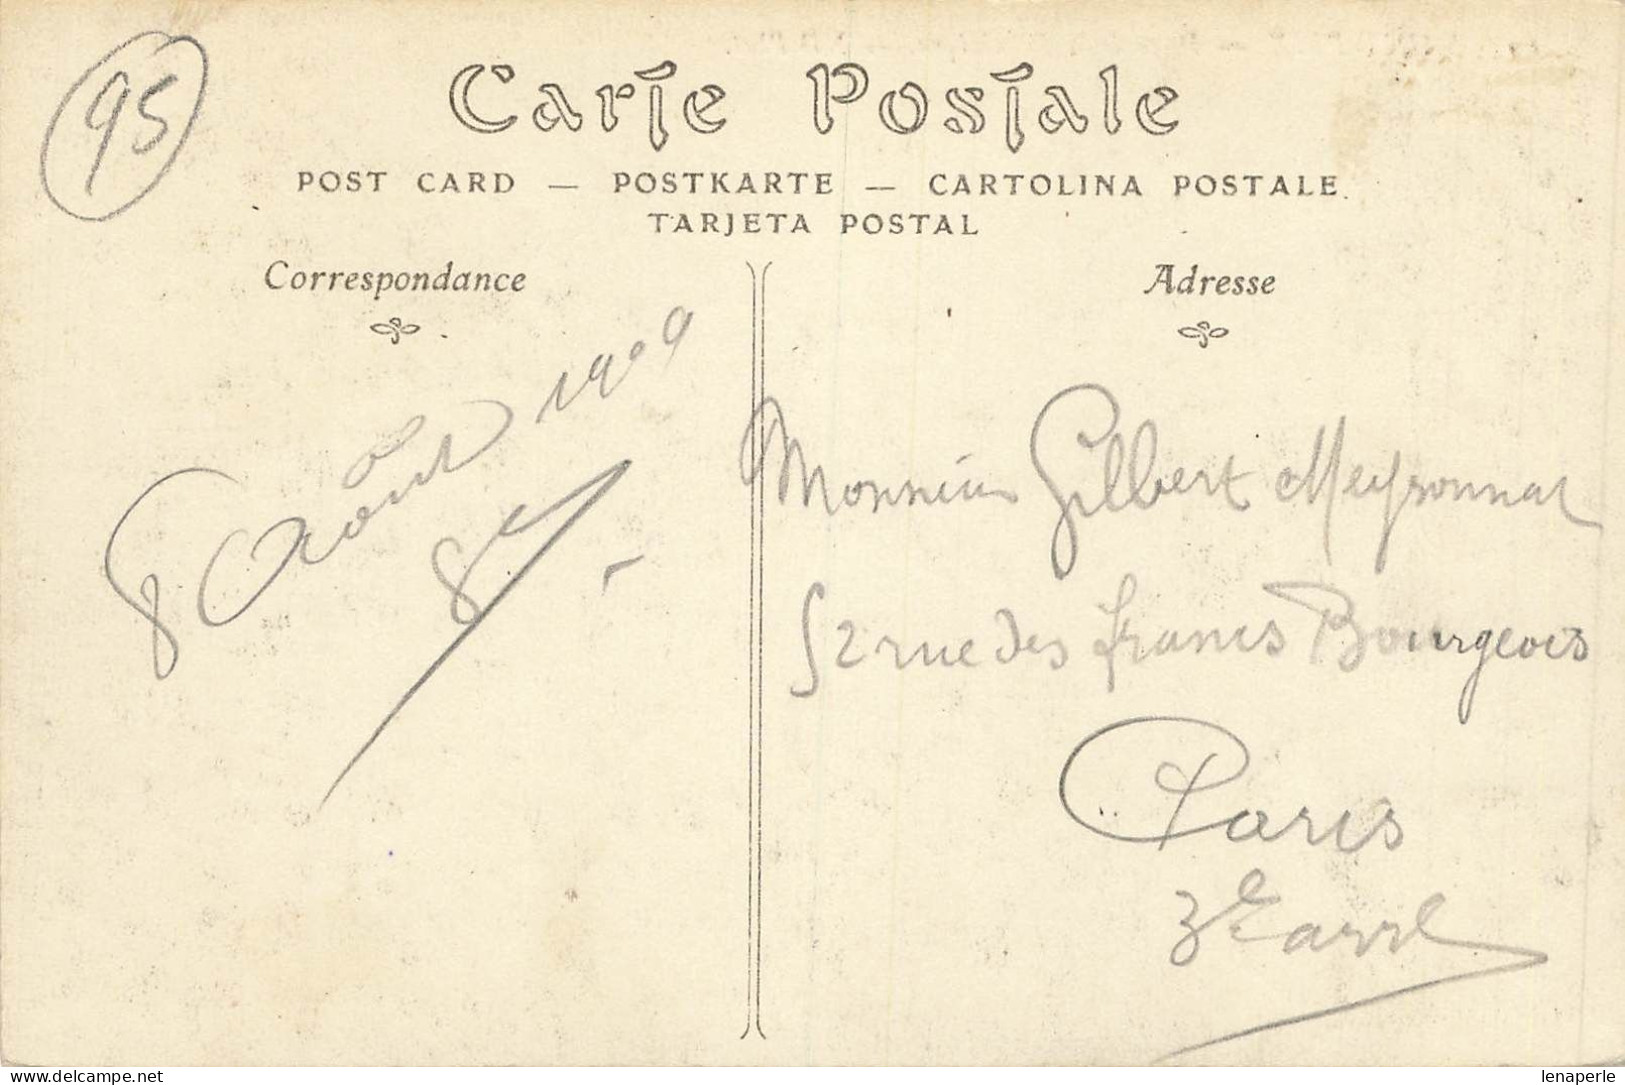 95
Carte Postale
POST CARD — POSTKARTE — CARTOLINA POSTALE
TARJETA POSTAL
Correspondance
Adresse
8 Août 1909
Monsieur Gilbert Meyronnat
52 rue des francs Bourgeois
Paris
3e arre
www.delcampe.net
lenaperle